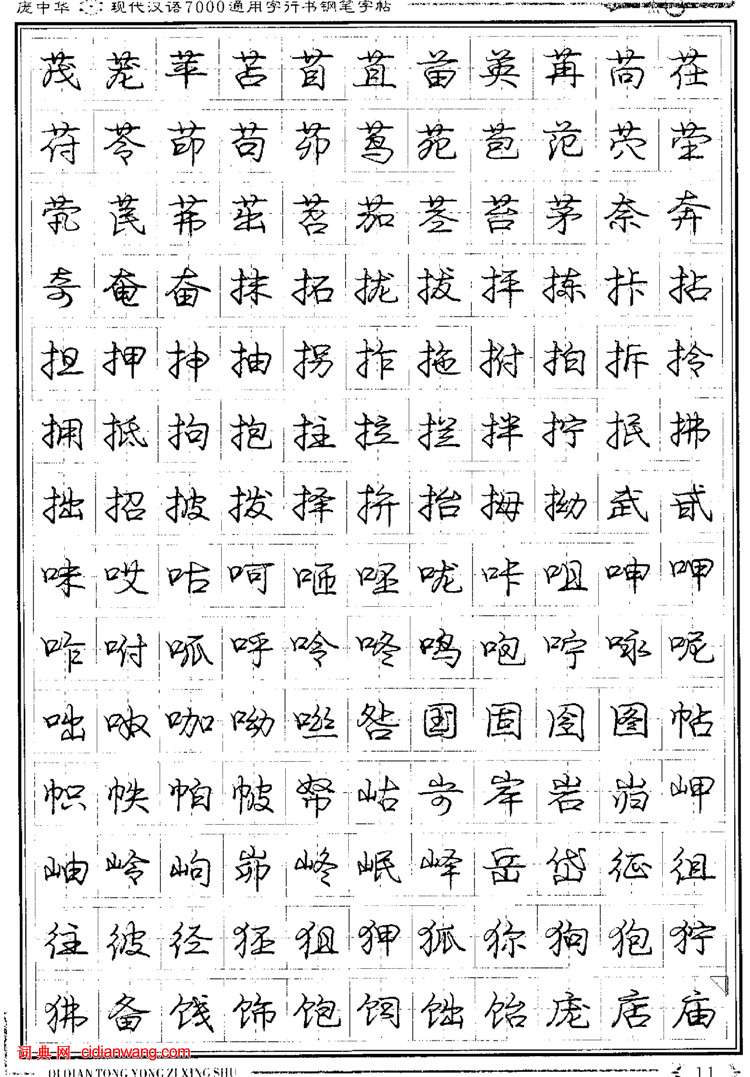 庞中华 现代汉语7000通用字行书钢笔字帖
茂茏苹苫苜苴苗英苒苘茌
苻苓茚苟茆茑苑苞范茓茔
茕苠茀茁苕茄茎苔茅奈奔
奇奄奋抹拓拢拔抨拣拤拈
担押抻抽拐拃拖拊拍拆拎
拥抵拘抱拄拉拦拌拧抿拂
拙招披拨择拚抬拇拗武甙
味哎咕呵咂呸咙咔咀呻呷
咋咐呱呼呤咚鸣咆咛咏呢
咄呶咖呦咝咎国固囹图帖
帜帙帕帔帑岵岢岸岩岿岬
岫岭岣峁峂岷峄岳岱征徂
往彼径狉狙狎狐狝狗狍狞
狒备饯饰饱饲饳饴庞店庙
词典网 cidianwang.com
QI QIAN TONG YONG ZI XING SHU
11